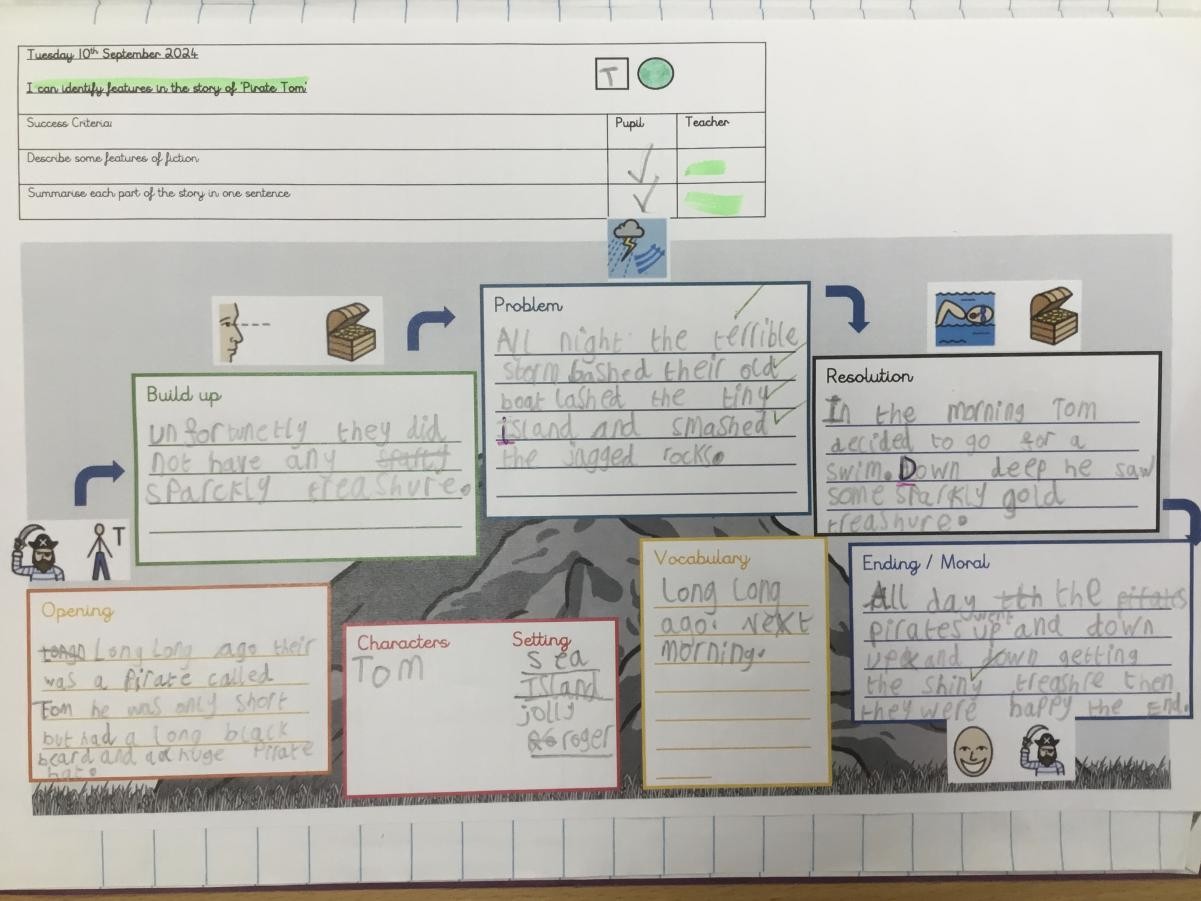 Tuesday 10th September 2024
I can identify features in the story of 'Pirate Tom'
T
Success Criteria:
Pupil
Teacher
Describe some features of fiction
Summarise each part of the story in one sentence
Opening
Long Long ago their
was a Pirate called
Tom he was only short
but had a long black
beard and a huge Pirate
hat.
T
Build up
unfortunetly they did
not have any
sparckly treashure.
Problem
All night the terrible
storm bashed their old
boat lashed the tiny
island and smashed
the jagged rocks.
Resolution
In the morning Tom
decided to go for a
swim. Down deep he saw
some sparkly gold
treashure.
Ending / Moral
All day the
pirates went up and down
up and down getting
the shiny treashre then
they were happy the End.
Characters
Tom
Setting
sea
Island
jolly
roger
Vocabulary
Long Long
ago. Next
morning.